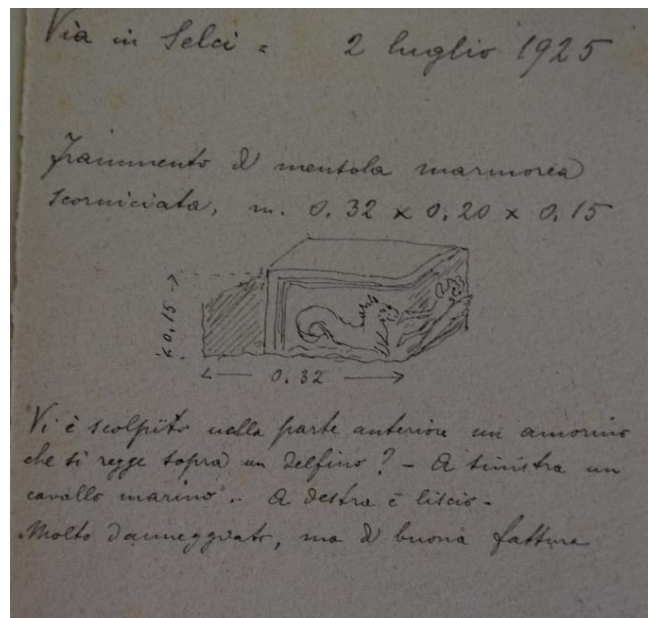 Via in Selci = 2 luglio 1925
Frammento di mensola marmorea
scorniciata, m. 0.32 x 0.20 x 0.15
0.15
0.32
Vi è scolpito nella parte anteriore un amorino
che si regge sopra un delfino? - A sinistra un
cavallo marino -. A destra è liscio -
Molto danneggiato, ma di buona fattura